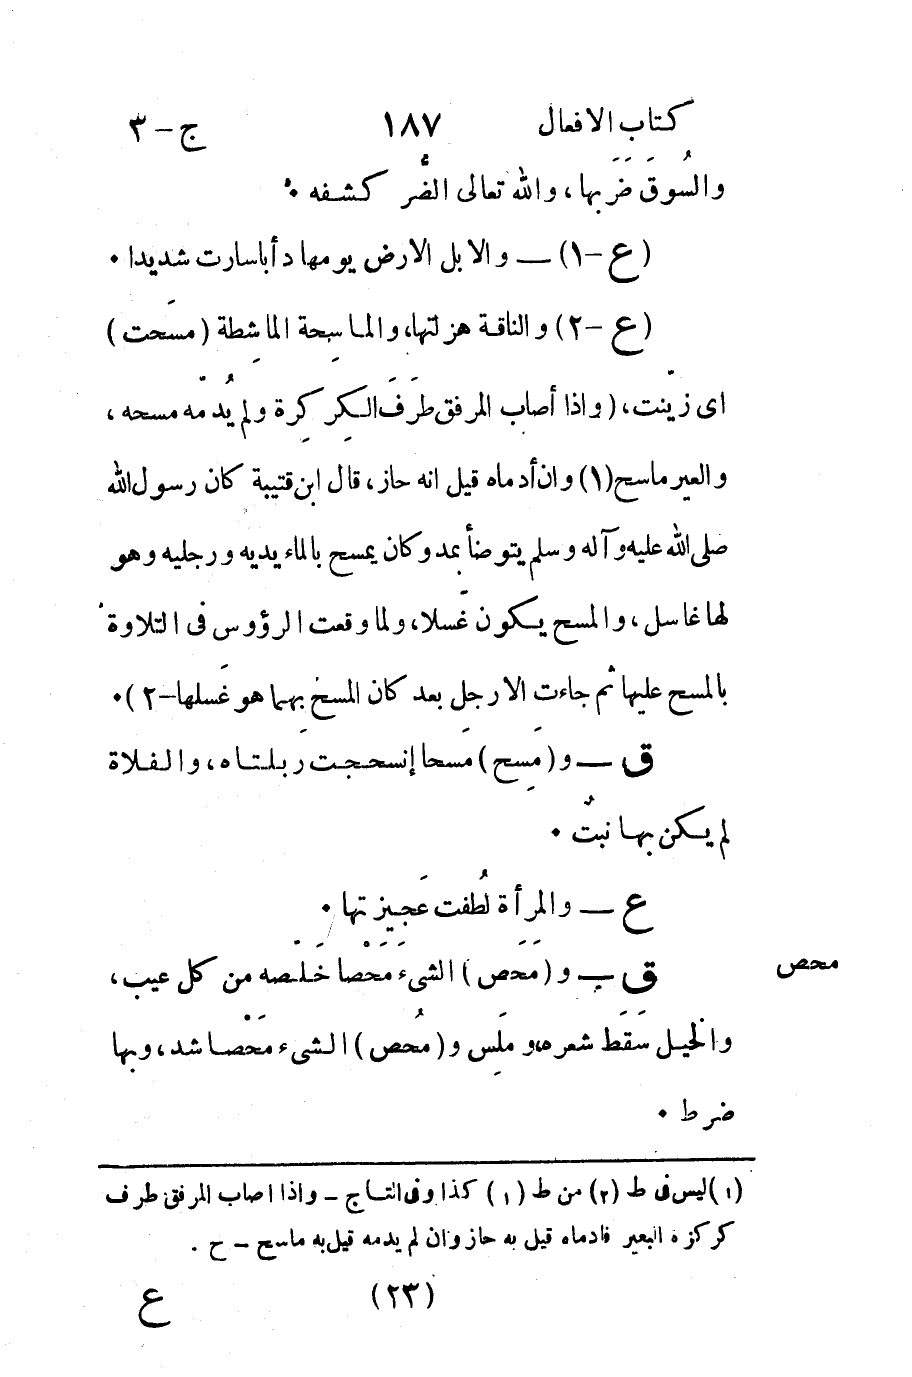 كتاب الافعال ١٨٧ ج-٣
والسُوقَ ضَرَبها، والله تعالى الضُّر كشفه ٠
(ع-١) — والابل الارض يومها دأبا سارت شديدا ٠
(ع-٢) والناقة هزلتها، والماسِحة الماشِطة (مسَحت)
اى زيّنت، (واذا أصاب المرفق طَرَفَ الكِركِرة ولم يُدمّه مسحه،
والعير ماسح(١) وان أدماه قيل انه حاز، قال ابن قتيبة كان رسول الله
صلى الله عليه وآله وسلم يتوضأ بمد وكان يمسح بالماء يديه ورجليه وهو
لها غاسل، والمسح يكون غَسلا، ولما وقعت الرؤوس فى التلاوة
بالمسح عليها ثم جاءت الارجل بعد كان المسخ بهما هو غَسلها-٢)٠
ق — و(مَسِح) مَسحا إنسحجت رَبلتاه، والفلاة
لم يكن بها نبتٌ ٠
ع — والمرأة لُطفت عَجيزتها ٠
محص
ق ب و(مَحَص) الشىءَ مَحْصا خَلّصه من كل عيب،
والحبل سَقَط شعره، و مَلِس و(مُحص) الشىء مَحْصا شد، وبها
ضرط ٠
(١) ليس فى ط (٢) من ط (١) كذا وفى التاج - واذا اصاب المرفق طرف
كركرة البعير فادماه قيل به حاز وان لم يدمه قيل به ماسح - ح .
(٢٣) ع